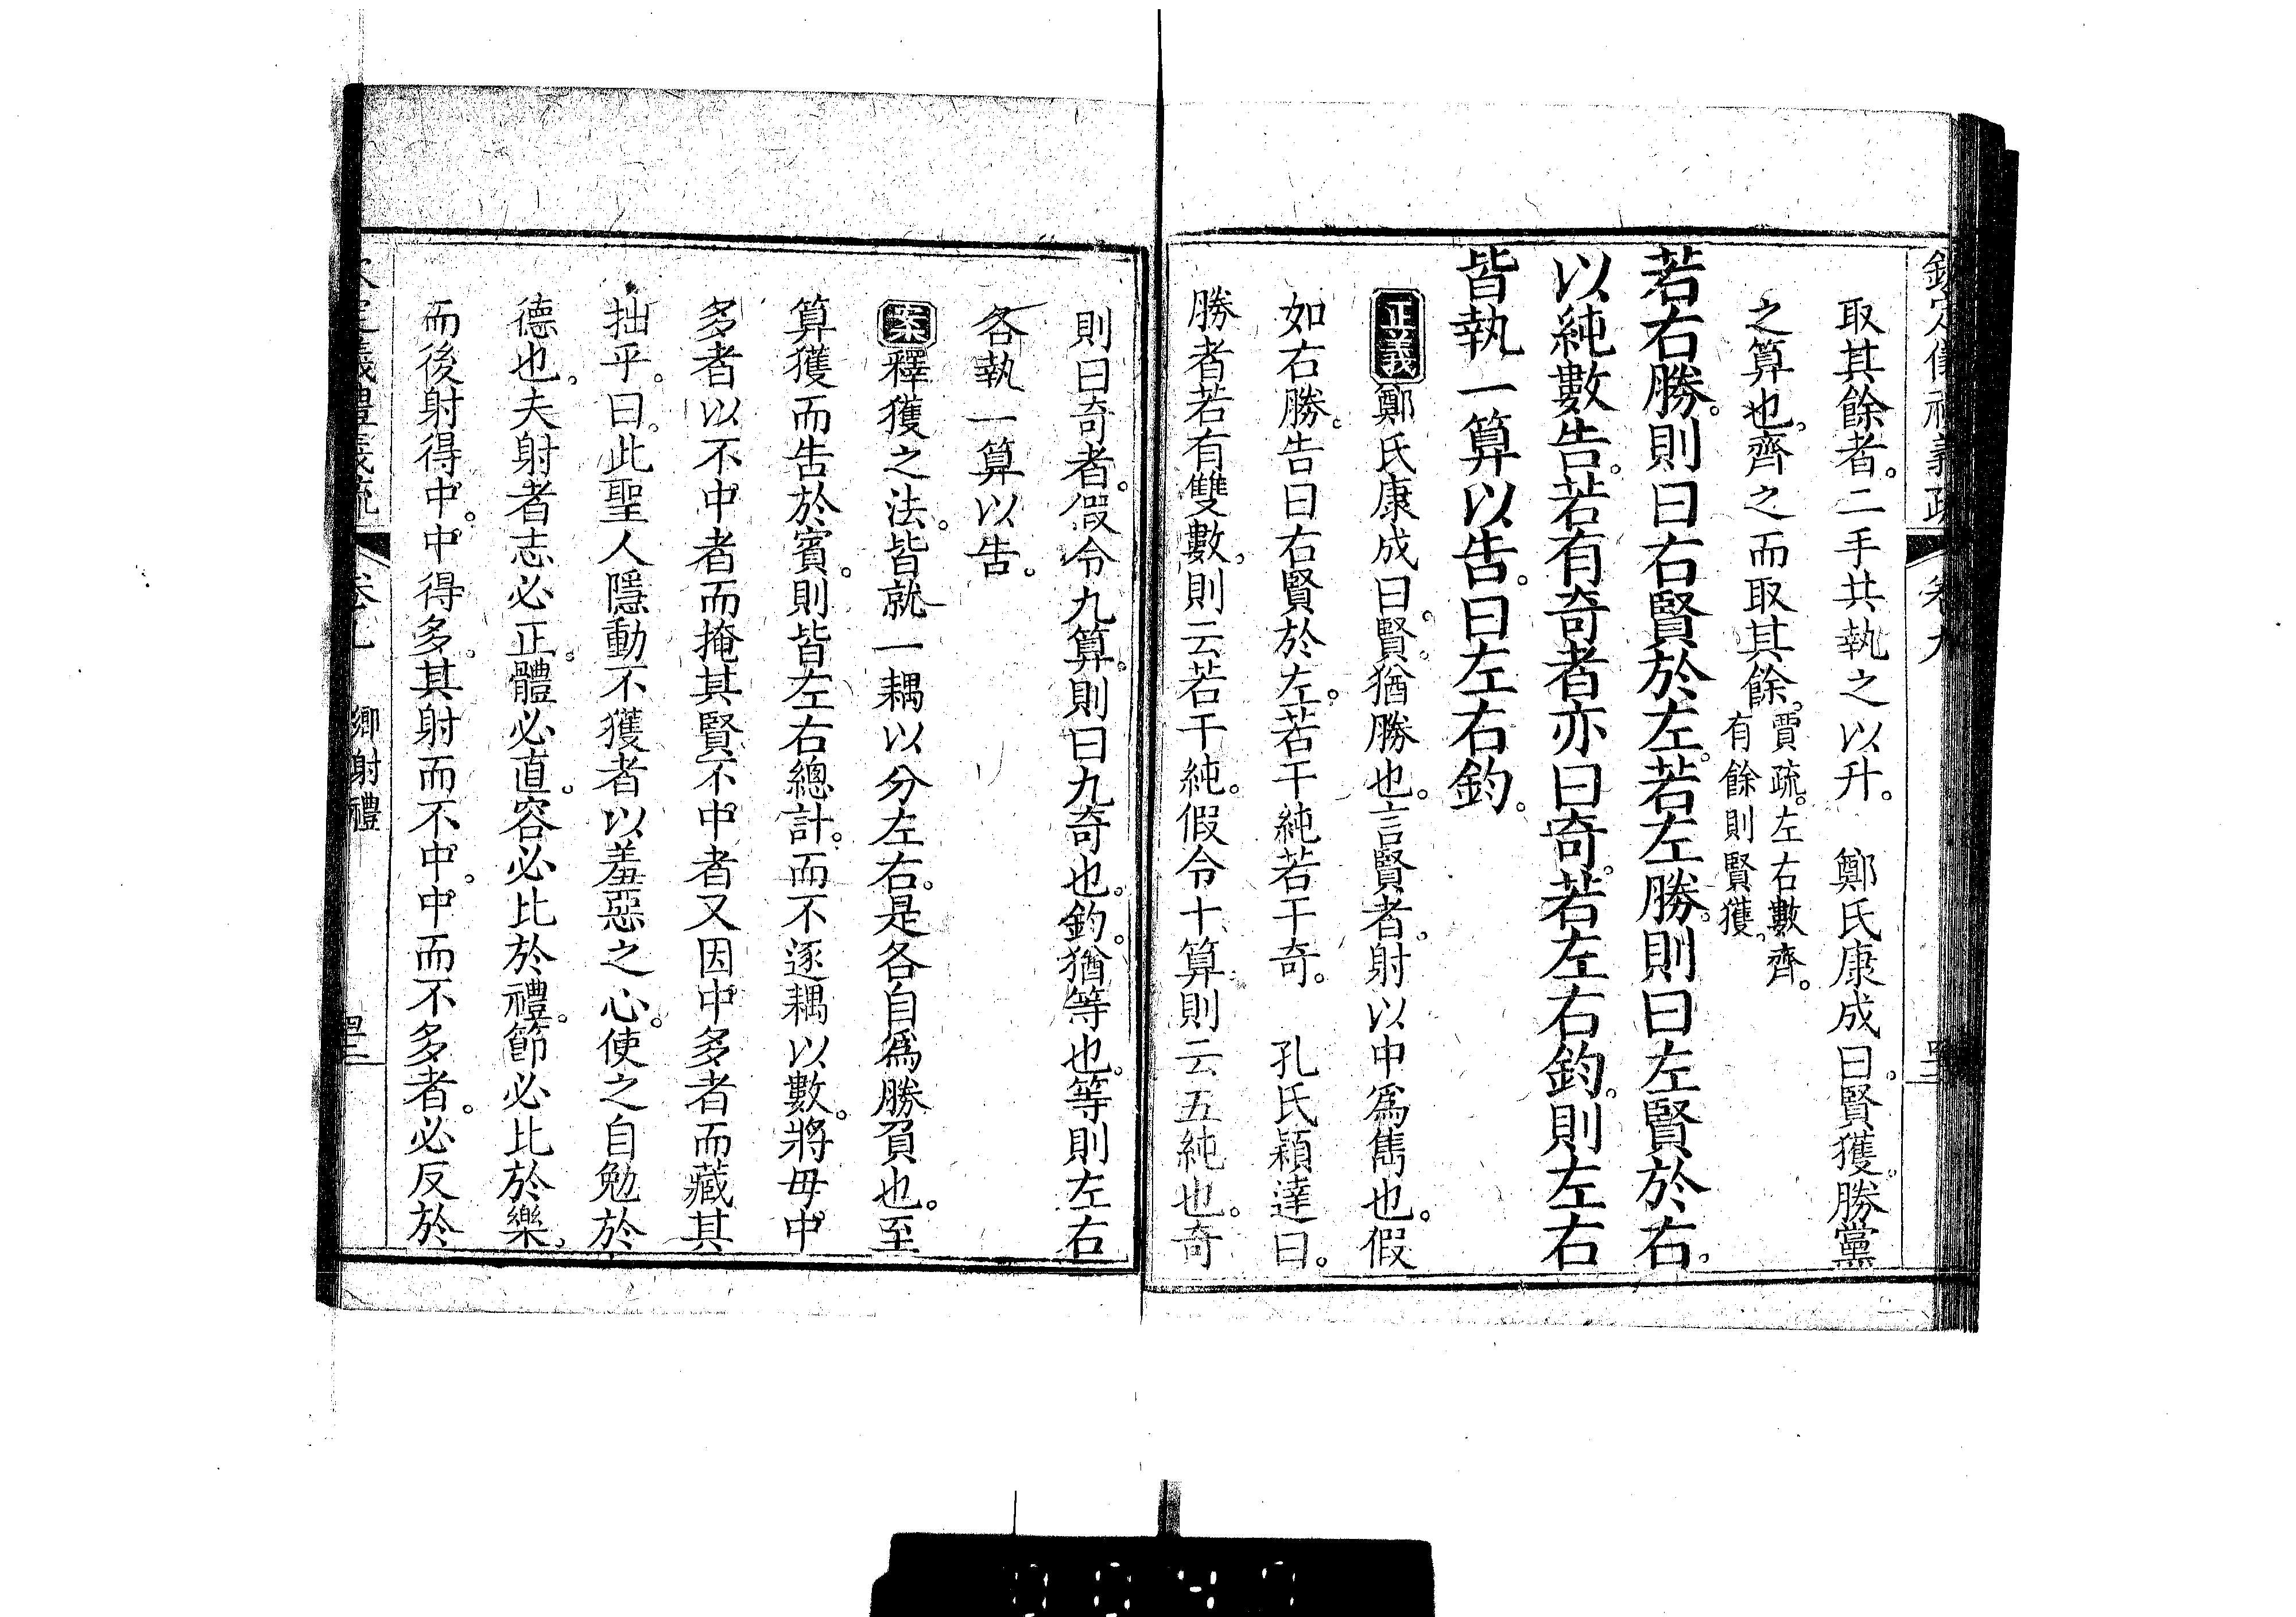 欽定儀禮義疏 卷九
取其餘者。二手共執之以升。 鄭氏康成曰。賢獲。勝黨
之算也。齊之而取其餘。賈疏。左右數齊。有餘則賢獲。
若右勝。則曰右賢於左。若左勝。則曰左賢於右。
以純數告。若有奇者亦曰奇。若左右鈞。則左右
皆執一算以告。曰左右鈞。
正義鄭氏康成曰。賢。猶勝也。言賢者。射以中爲雋也。假
如右勝。告曰右賢於左。若干純若干奇。 孔氏穎達曰。
勝者若有雙數。則云若干純。假令十算。則云五純也。奇
則曰奇者。假令九算。則曰九奇也。鈞。猶等也。等則左右
各執一算以告。
案釋獲之法。皆就一耦以分左右。是各自爲勝負也。至
算獲而告於賓。則皆左右總計。而不逐耦以數。將毋中
多者以不中者而掩其賢。不中者又因中多者而藏其
拙乎。曰。此聖人隱動不獲者以羞惡之心。使之自勉於
德也。夫射者志必正。體必直。容必比於禮。節必比於樂。
而後射得中。中得多。其射而不中。中而不多者。必反於
欽定儀禮義疏 卷九 鄉射禮